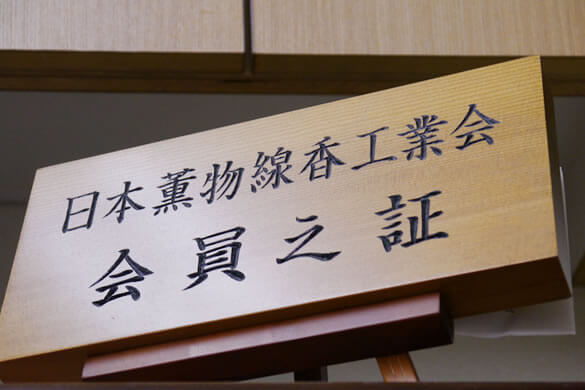 日本薫物線香工業会
会員之証